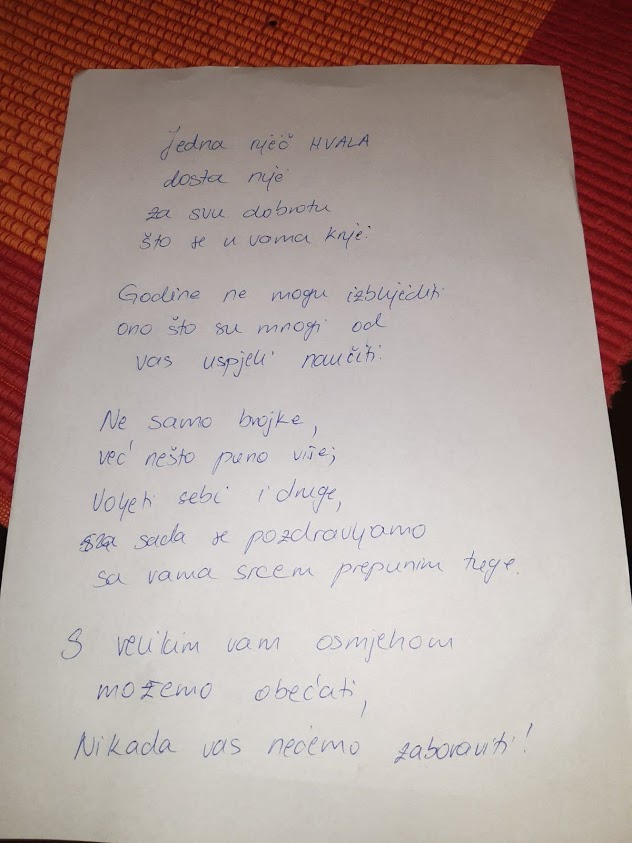 Jedna riječ HVALA
dosta nije
za svu dobrotu
što se u vama krije.
Godine ne mogu izblijediti
ono što su mnogi od
vas uspjeli naučiti.
Ne samo brojke,
već nešto puno više;
Voljeti sebi i druge,
za sada se pozdravljamo
sa vama srcem prepunim tuge.
S velikim vam osmjehom
možemo obećati,
Nikada vas nećemo zaboraviti!